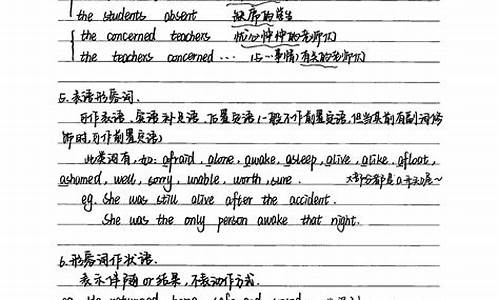 the students absent 缺席的学生
the concerned teachers 忧心忡忡的老师们
the teachers concerned ... (与…事情)有关的老师们
5. 表语形容词.
可作表语、宾语补足语、后置定语(一般不作前置定语,但当其前有副词修
饰时,可作前置定语)
此类词有,如: afraid, alone, awake, asleep, alive, alike, afloat,
ashamed, well, sorry, unable, worth, sure. 大部分都是a开头的~
eg. She was still alive after the accident.
She was the only person awake that night.
6. 形容词作状语.
表示伴随 or 结果, 不表动作方式.